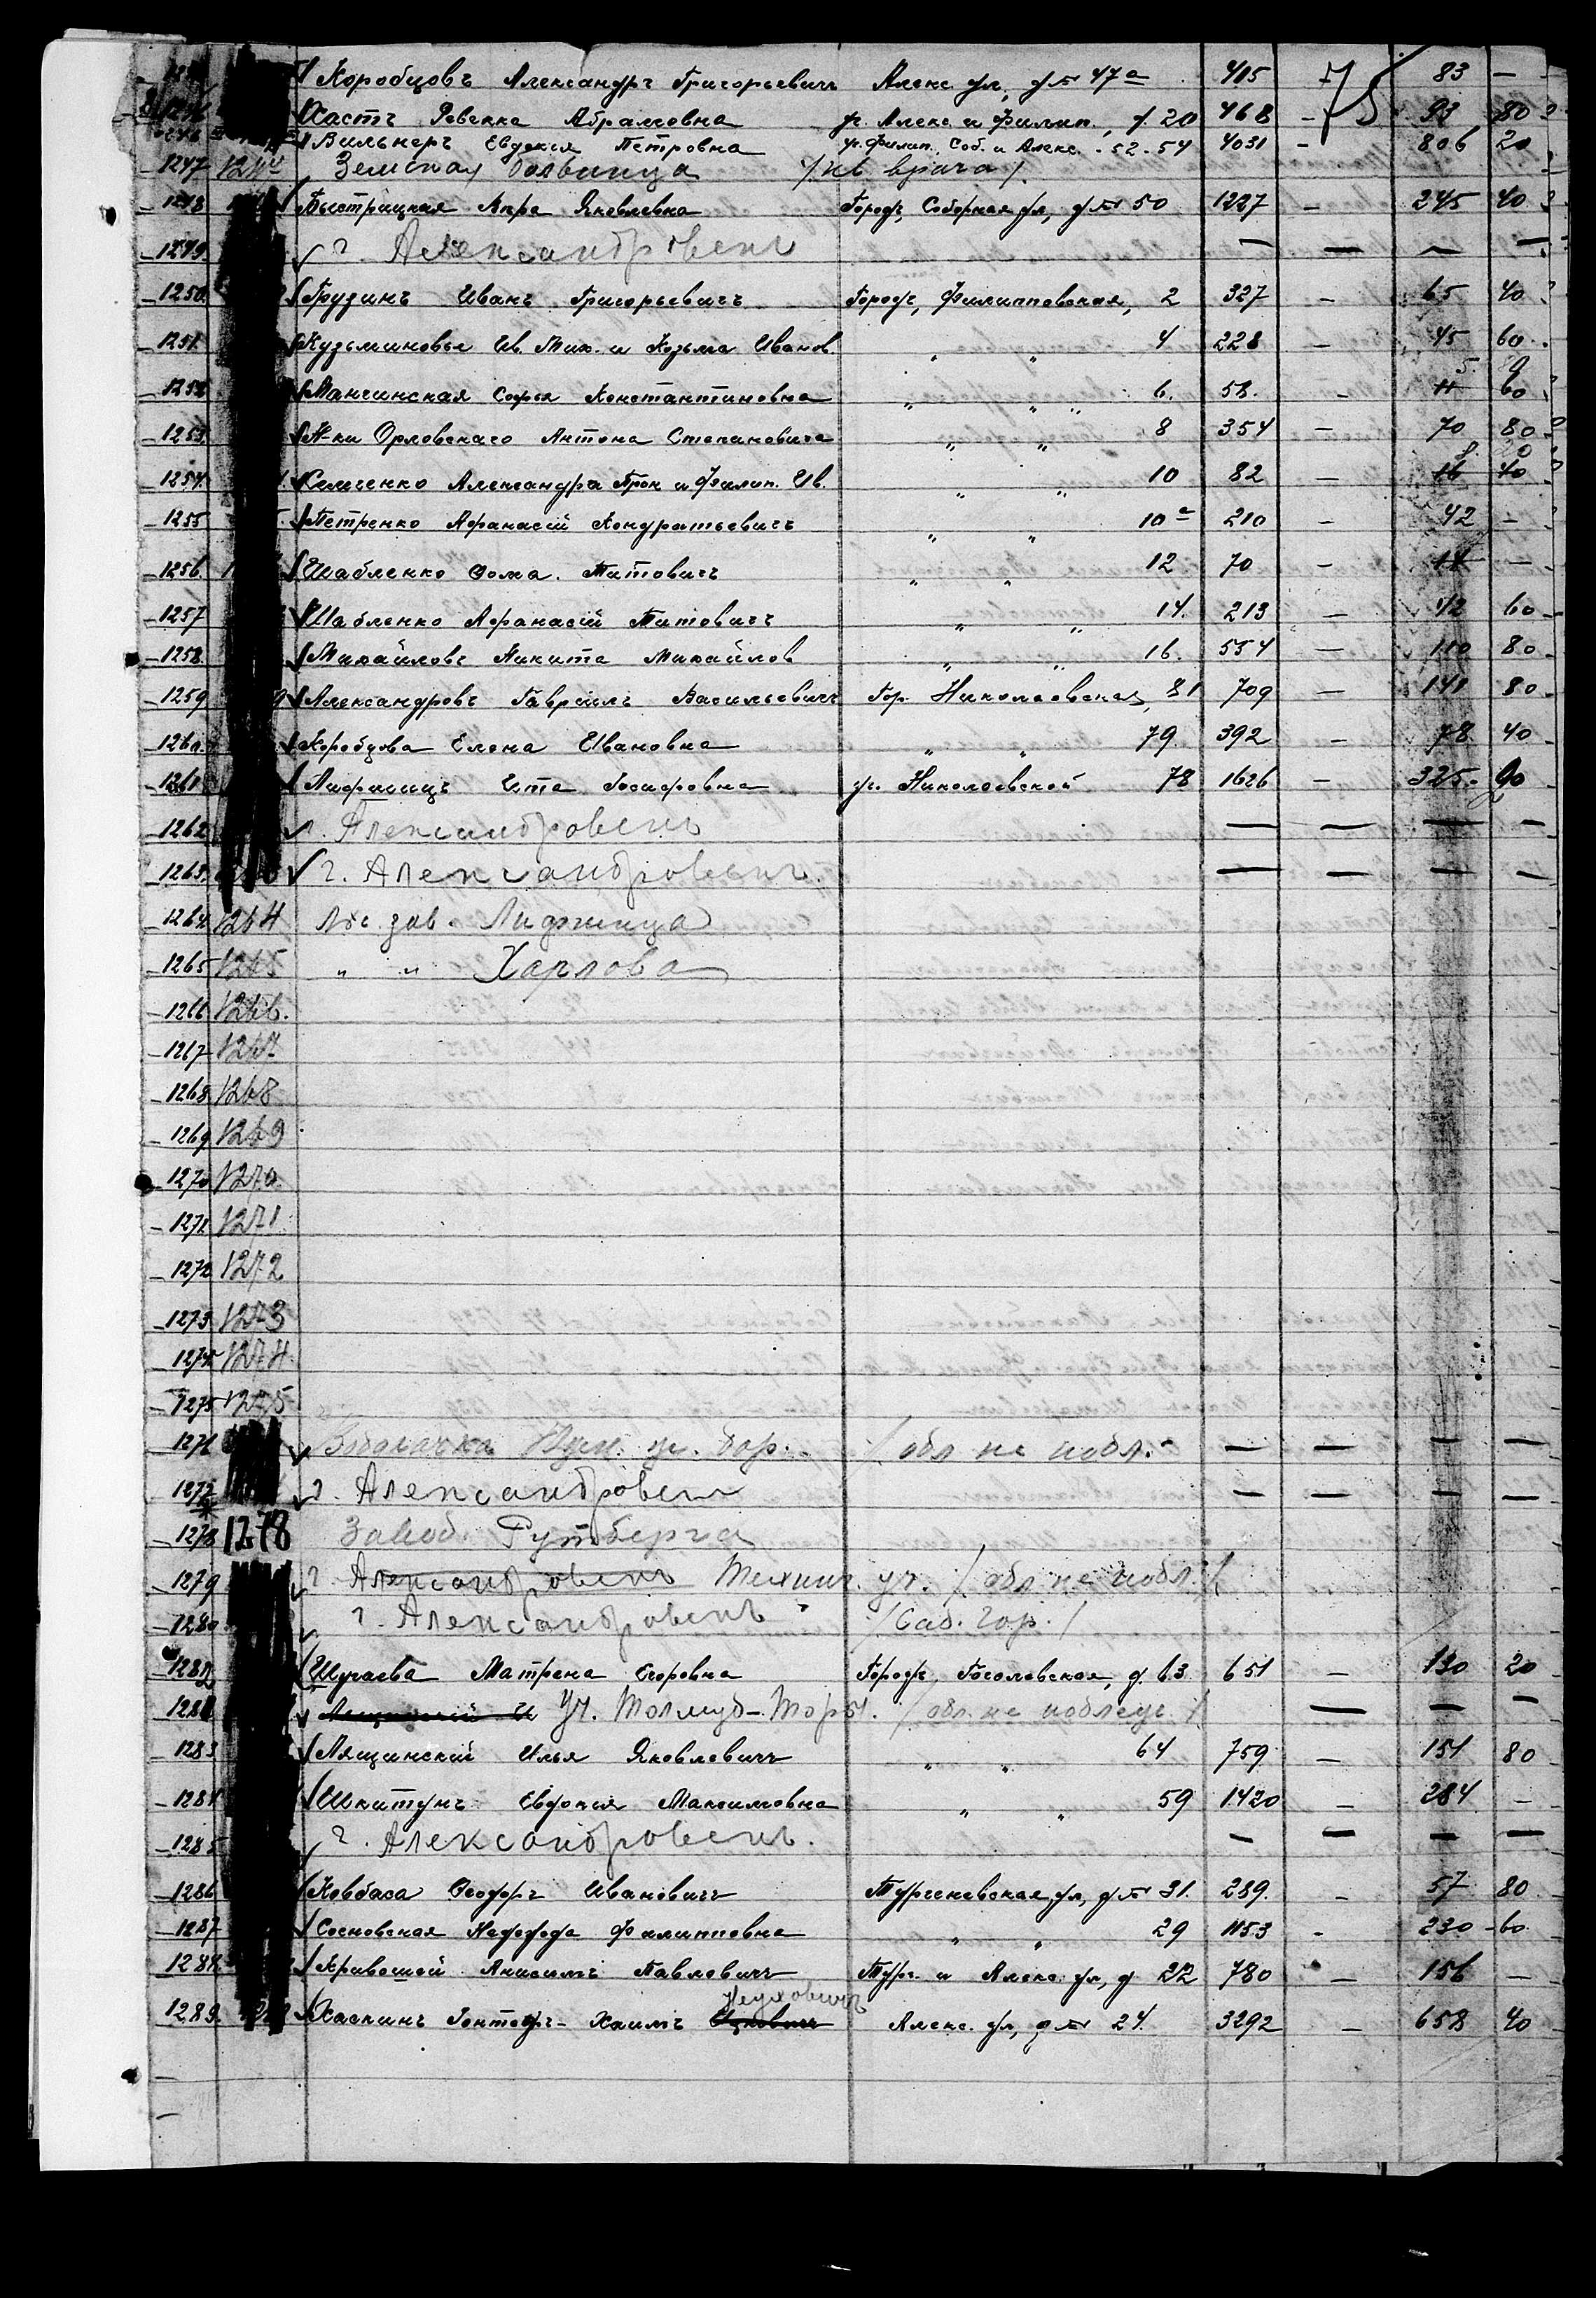 Коробцовъ Александръ Григорьевичъ Алекс. ул., д № 47а 415 83 —
75
Хастъ Ревекка Абрамовна у. Алекс. и Филип., д. 20 468 — 93 80
1246 Вильнеръ Евдокія Петровна у. Филип., Соб. и Алекс. 52-54 4031 — 806 20
1247 Земская больница /кв врача/
1248 Быстрицкая Яковлевна Городъ, Соборная ул, д № 50 1227 — 245 40
1249. г. Александровскъ — — — —
1250. Грузинъ Иванъ Григорьевичъ Городъ, Филипповская, 2 327 — 65 40
1251. Кузьминовы Ив. Мих. и Козьма Иванов. " " 4 228 — 45 60
1252 Манчинская Софья Константиновна " " 6. 58. — 11 60
1253. Н-ки Орловскаго Антона Степановича " " 8 354 — 70 80
1254. Семченко Александра Прок и Филип. Ив. " " 10 82 — 16 40
1255 Петренко Афанасій Кондратьевичъ " " 10а 210 — 42 —
1256. Шабленко Фома Титовичъ " " 12 70 — 14 —
1257 Шабленко Афанасій Титовичъ " " 14. 213 — 42 60
1258. Михайловъ Никита Михайлов " " 16. 554 — 110 80
1259 Александровъ Гавріилъ Васильевичъ Гор. Николаевская, 81 709 — 141 80
1260. Коробцова Елена Ивановна " " 79. 392 — 78 40
1261 Лифшицъ Ита Іосифовна уг. Николаевской 78 1626 — 325 —
1262 г. Александровскъ — — — —
1263. г. Александровскъ. — — — —
1264 1264 Лѣс. зав. Лифшица
1265 1265 " " Харлова
1266 1266.
1267 1267
1268 1268
1269 1269
1270 1270.
1271 1271
1272 1272
1273 1273
1274 1274.
1275 1275
1276 /обл не побл. — — — —
1277 г. Александровскъ — — — —
1278 1278 Завод. Гутберга
1279 г. Александровскъ Технич. уч. /обл не побл./
1280 г. Александровскъ /Сад. Гор./
1282 Шугаева Матрена Егоровна Городъ, Гоголевская, д. 63 651 — 130 20
1281 Уч. Толмуд-Торы. /обл. не подлеж./ — — —
1283 Лящинскій Илья Яковлевичъ " " 64 759 — 151 80
1284 Шкитунъ Евдокія Максимовна " " 59 1420 — 284 —
1285 г. Александровскъ. — — — —
1286 Ковбаса Ѳеодоръ Ивановичъ Тургеневская ул, д № 31. 289. — 57 80
1287 Сосновская Надежда Филипповна " " 29 1153 - 230 60
1288. Кривошей Анисимъ Павловичъ Тург. и Алекс. ул, д 22 780 — 156 —
1289. Хаскинъ Хаимъ Алекс. ул, д № 24. 3292 — 658 40